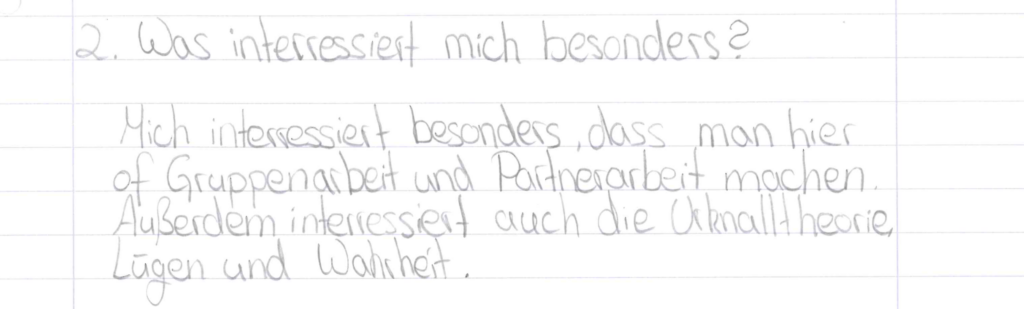 2. Was interressiert mich besonders?
Mich interressiert besonders, dass man hier
of Gruppenarbeit und Partnerarbeit machen.
Außerdem interressiert auch die Urknalltheorie,
Lügen und Wahrheit.